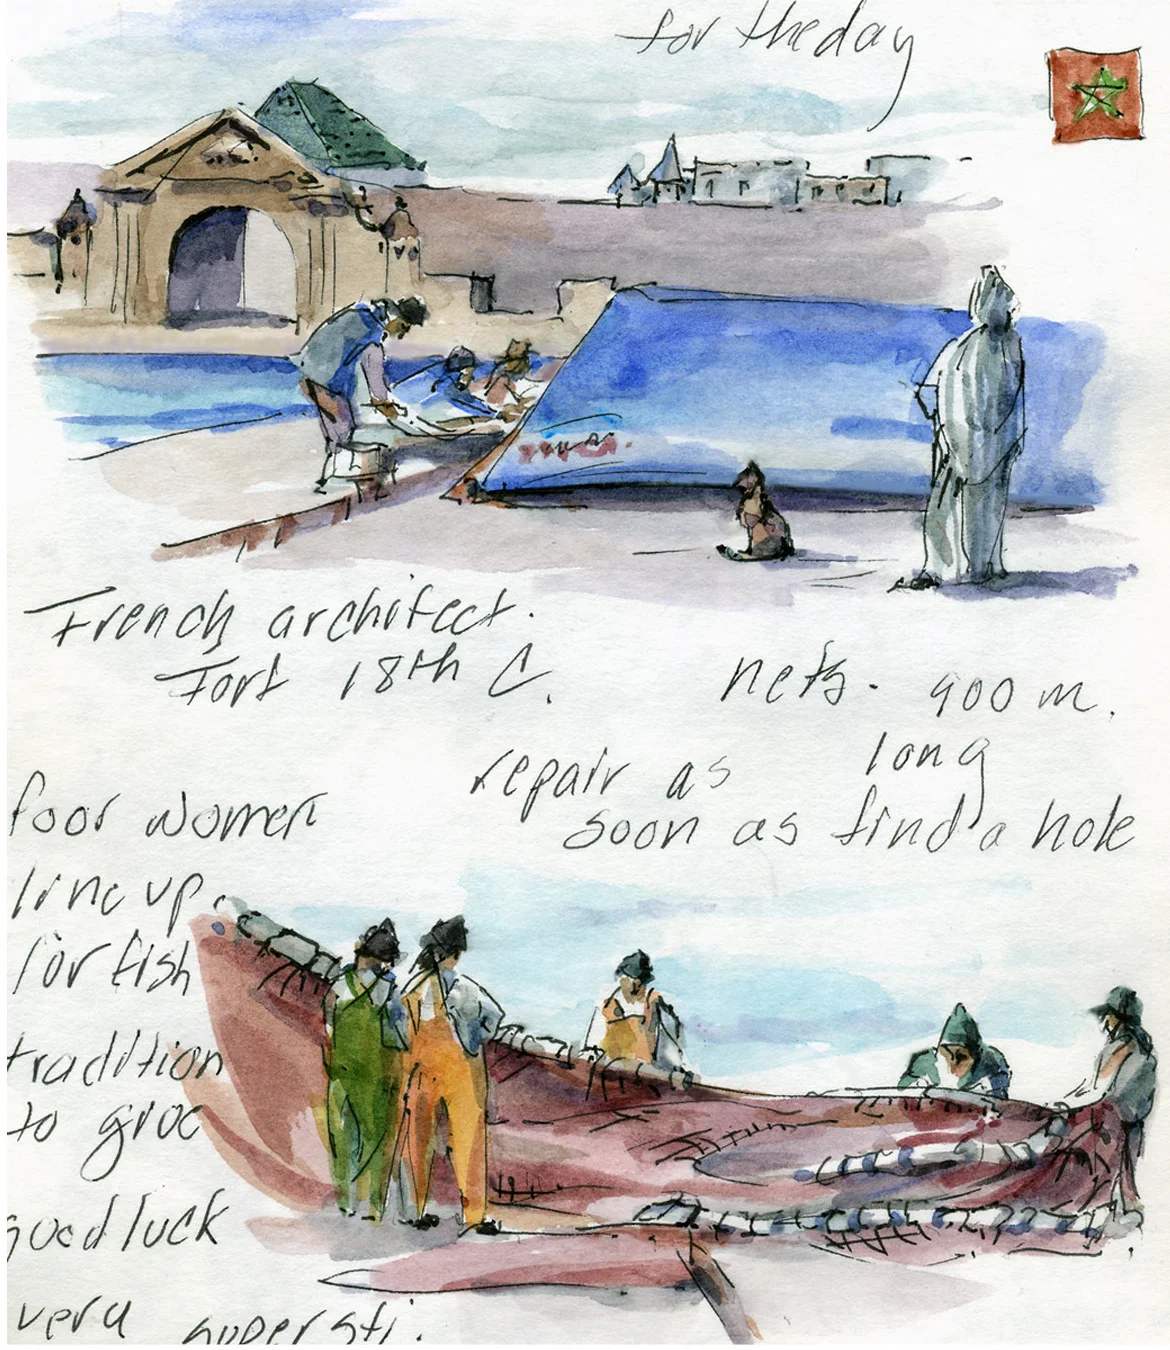 for the day
French architect.
Fort 18th C.
nets. 900 m.
long
repair as
soon as find a hole
Poor women
line up.
for fish
tradition
to give
good luck
very supersti.